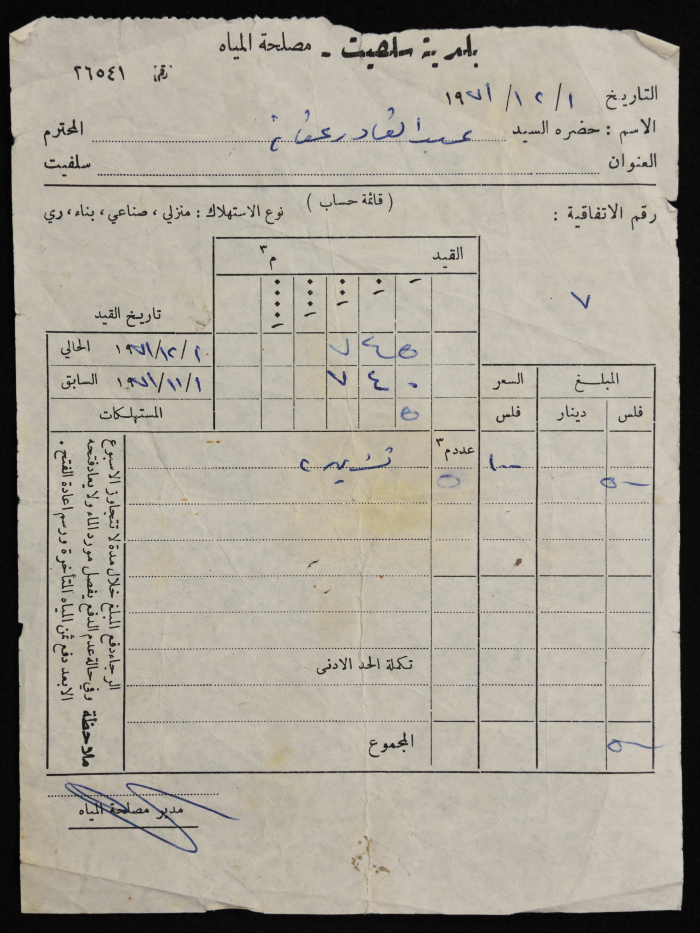 بلدية سلفيت - مصلحة المياه
رقم ٢٦٥٤١
التاريخ ١ / ١٢ / ١٩٧١
الاسم : حضره السيد عبد القادر عفانة المحترم
العنوان سلفيت
( قائمة حساب )
رقم الاتفاقية : نوع الاستهلاك : منزلي ، صناعي ، بناء ، ري
٧
القيد م٣
١ ١٠ ١٠٠ ١٠٠٠ ١٠٠٠٠
تاريخ القيد
٧٤٥ ١ / ١٢ / ١٩٧١ الحالي
٧٤٠ ١ / ١١ / ١٩٧١ السابق
٥ المستهلكات
المبلغ السعر
فلس دينار فلس
عدد م٣
٥٠٠ ١٠٠ ٥ تشرين ٢
تكملة الحد الادنى
المجموع ٥٠٠
ملاحظة
الرجاء دفع المبلغ خلال مدة لا تتجاوز الاسبوع
وفي حالة عدم الدفع يفصل مورد الماء ولا يعاد فتحه
الا بعد دفع ثمن المياه المتأخرة ورسم اعادة الفتح .
مدير مصلحة المياه